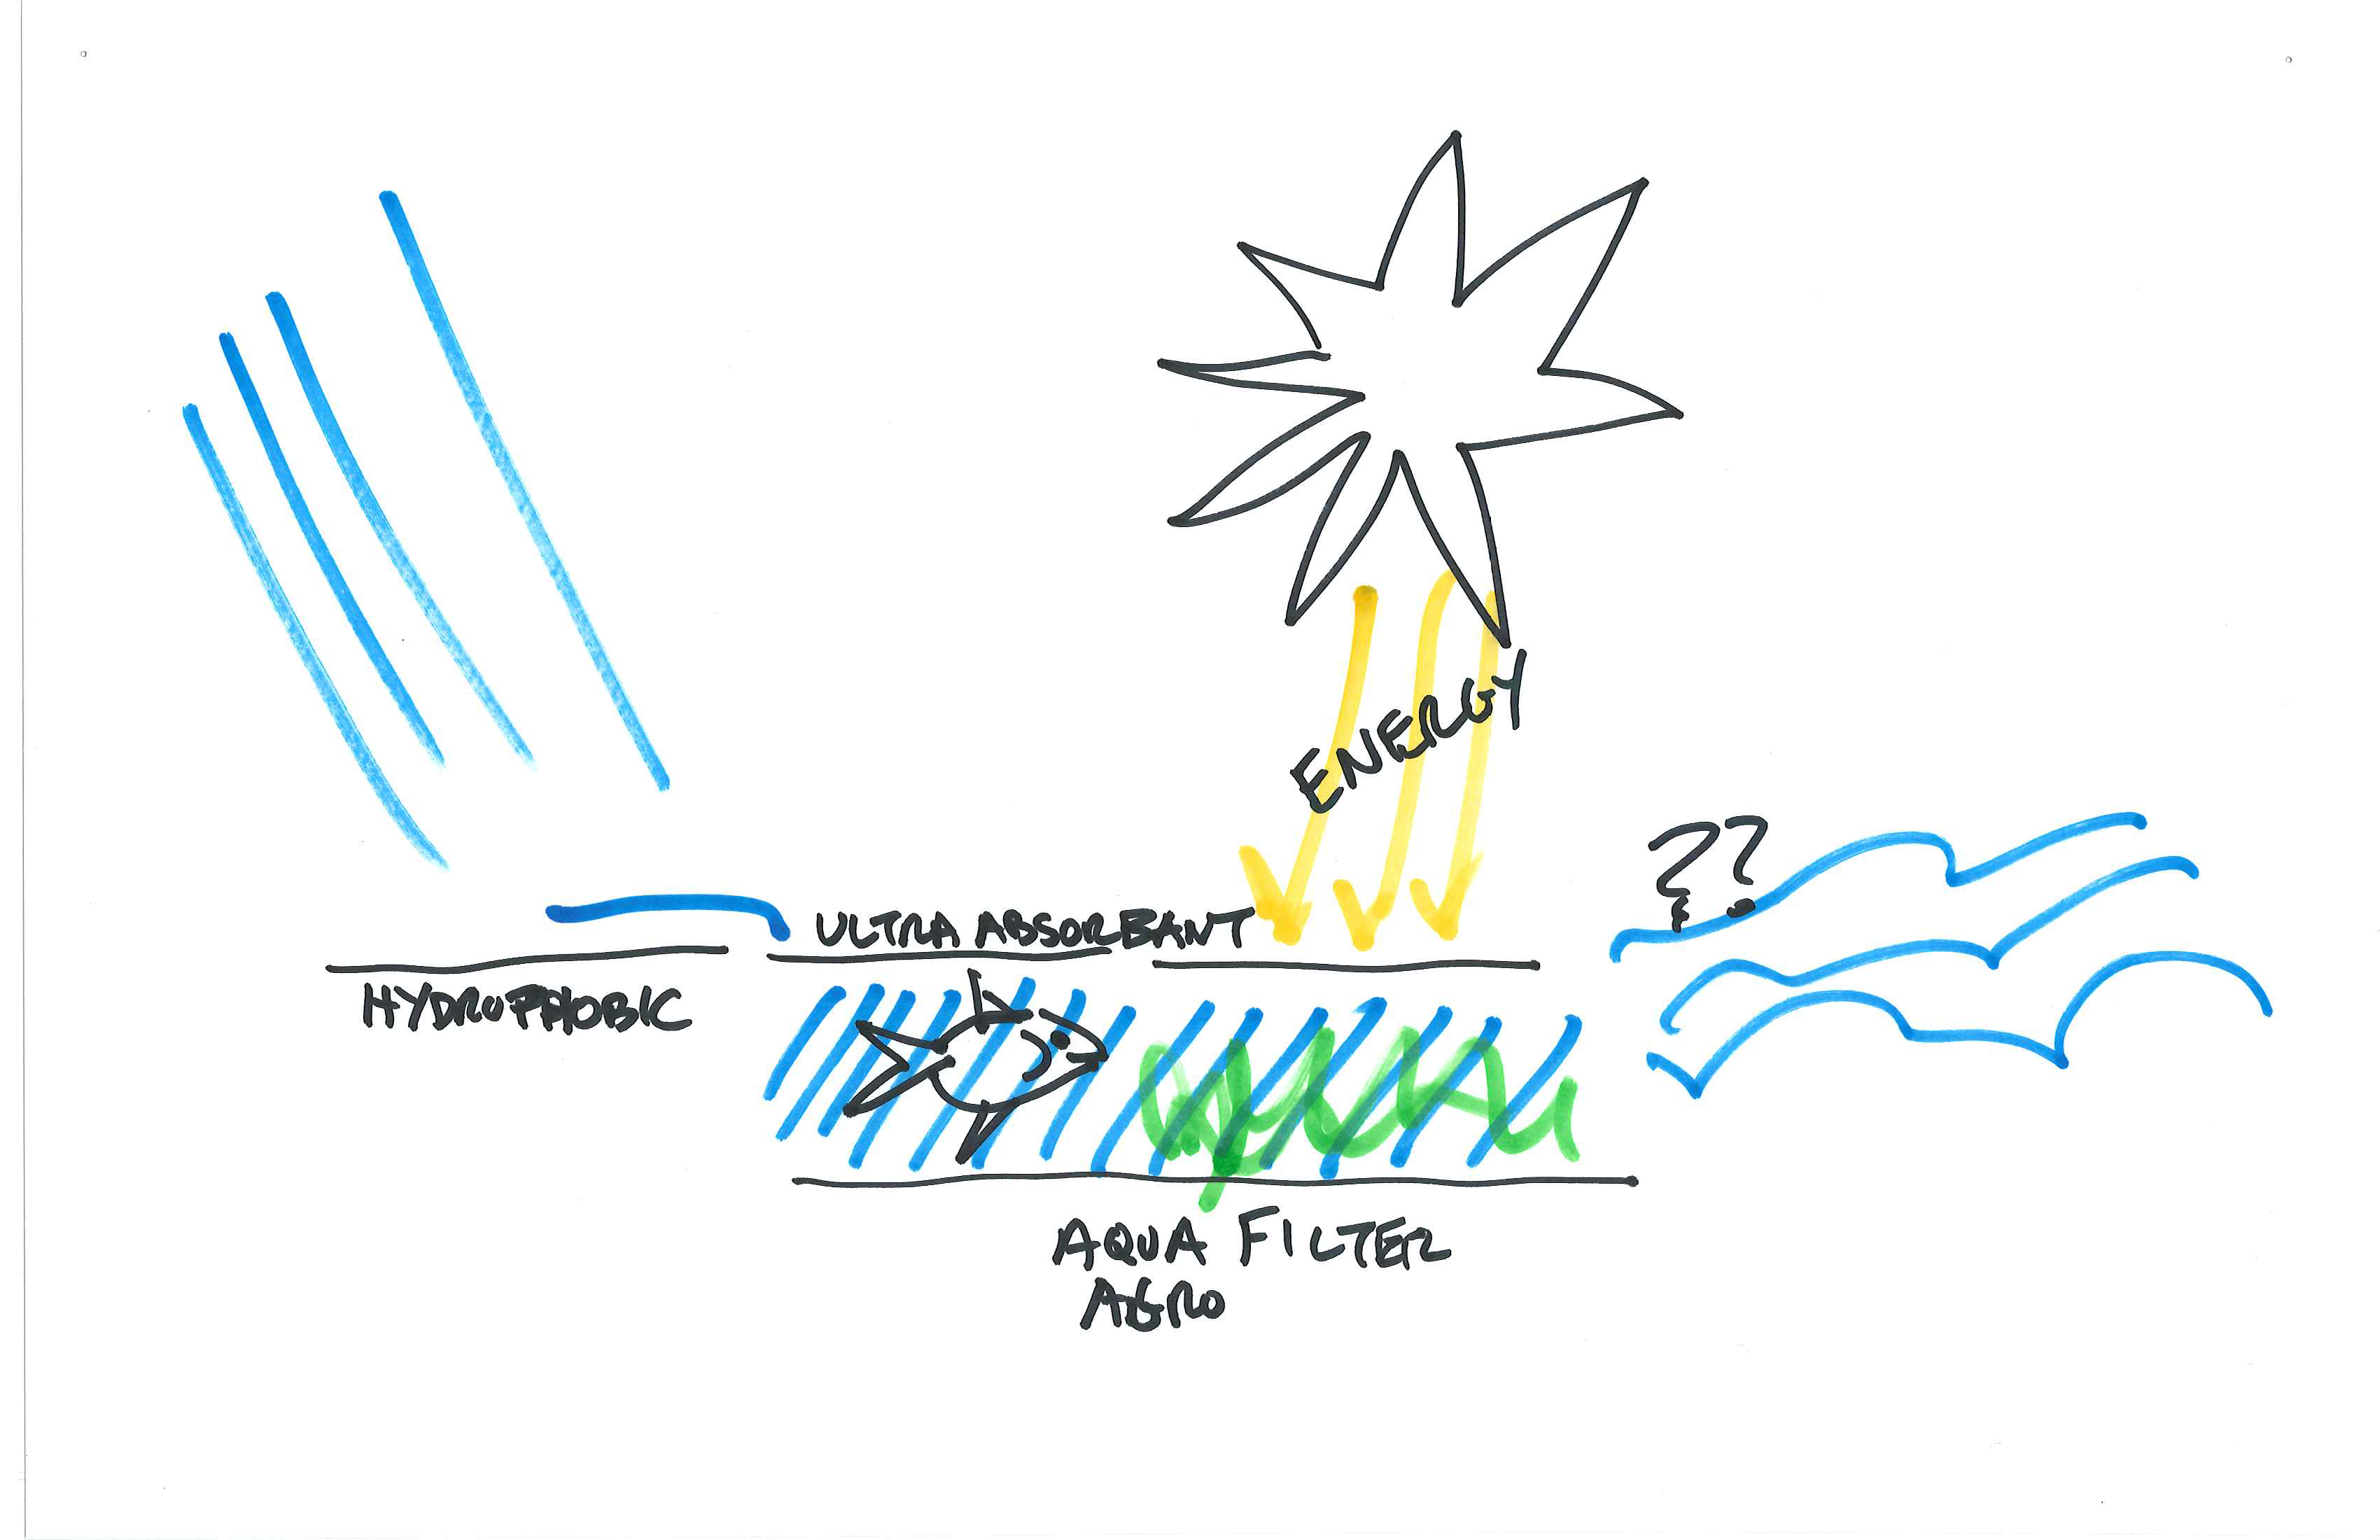 ENERGY
??
ULTRA ABSORBANT
HYDROPHOBIC
AQUA FILTER
AGRO